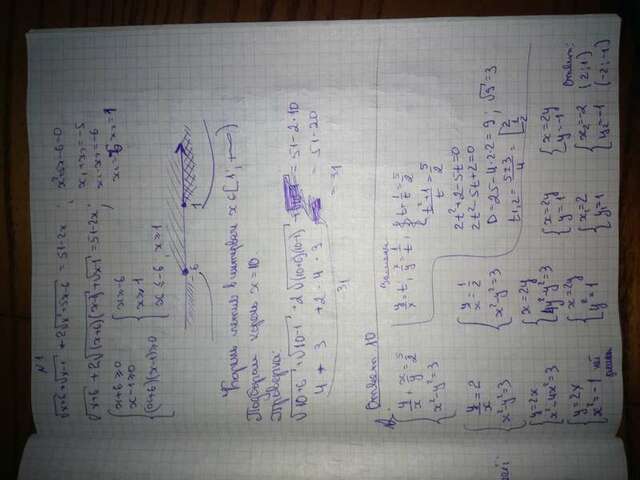 N1
√x+6 + √x-1 + 2√x²+5x-6 = 51-2x ; x²+5x-6=0
√x+6 + 2√(x+6)(x-1) + √x-1 = 51-2x ; x₁+x₂=-5
x₁·x₂=-6
x₁=-6 x₂=1
{x+6≥0
x-1≥0
(x+6)(x-1)≥0
{x≥-6
x≥1
x≤-6, x≥1
-6 1
Корень лежит в интервале x∈[1;+∞)
Подберем корень x=10
Проверка:
√10+6 + √10-1 + 2√(10+6)(10-1) = 51-2·10
4 + 3 + 2·4·3 = 51-20
31 = 31
Ответ: 10
{y/x + x/y = 5/2
x²-y²=3
Замена
y/x=t, x/y=1/t, t+1/t=5/2
t²+1/t=5/2
2t²+2-5t=0
2t²-5t+2=0
D=25-4·2·2=9, √9=3
t₁,₂=5±3/4=[2 1/2
{y/x=2
x²-y²=3
{y/x=1/2
x²-y²=3
{y=2x
x²-4x²=3
{x=2y
4y²-y²=3
{y=2x
x²=-1 нет
{x=2y
y²=1
{x=2y
y=1
{x=2y
y=-1
{x=2
y₁=1
{x₂=-2
y₂=-1
Ответ:
(2;1)
(-2;-1)